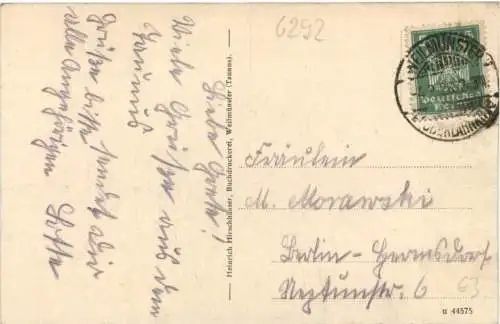 6292
Liebe Grete!
Viele Grüße aus dem
Taunus
Grüße bitte sendet Dir
alle Angehörigen
Lotte
Heinrich Hirschhäuser, Buchdruckerei, Weilmünster (Taunus).
WEILMÜNSTER
(OBERLAHNKREIS)
Deutsches
Reich
Fräulein
M. Morawski
Berlin-Hermsdorf
Neptunstr. 6
63
u 44575